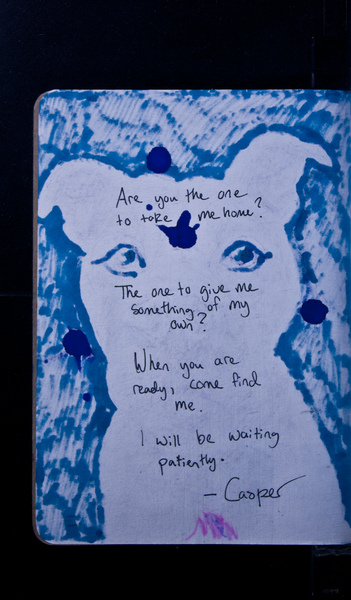 Are you the one
to take me home?
The one to give me
something of my
own?
When you are
ready, come find
me.
I will be waiting
patiently.
- Casper